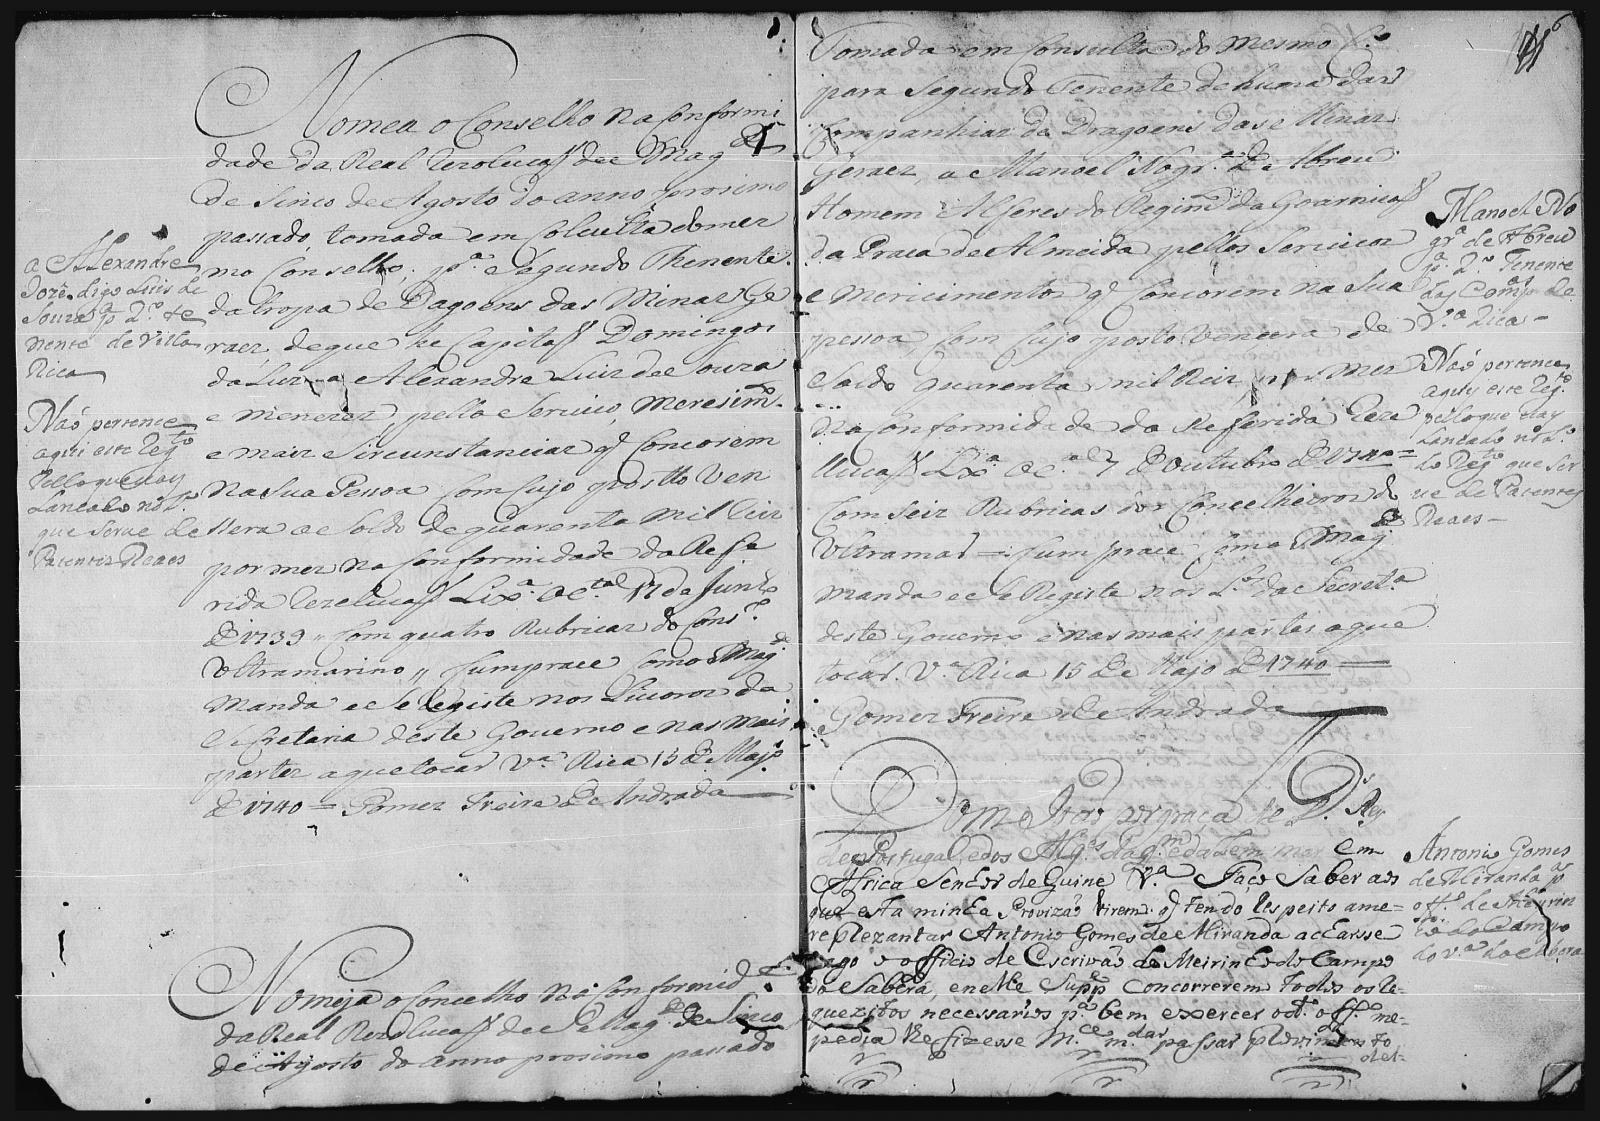 Nomea o Conselho na Conformi
dade da Real Rezolucaõ de S Mag.de
de Sinco de Agosto do anno proximo
passado, tomada em Colculta do mez
mo Conselho, p.a Segundo Thenente
da tropa de Dagoens das Minas Ge
raez, de que he Capitaõ Domingos
da Luz a Alexandre Luis de Souza
e Menezes, pello Servico, Meresim.
e mais Sircunstancias q Concorem
na Sua Pessoa Com Cujo postto Ven
sera de Soldo de quarenta mil Reis
por mez na Conformidade da Refe
rida Rezelucaõ Lix.a occ.tal 17 de Junho
de 1739 " Com quatro Rubricas do Cons.o
Vltramarino " Cumprace Como S Mag.de
Manda e Se Registe nos Livoros da
Secretaria deste Governo e nas mais
partes aque tocar V.a Rica 15 de Majo
de 1740 = Gomes Freire de Andrada
a Alexandre
Jozê digo Luis de
Souza p.a 2.o te
nente de Villa
Rica
Naõ pertence
aqui este Reg.to
pello que vay
Lancado no L.o
que serve de
Patentes Reaes
Nomeja o Concelho na Conformid.e
da Real Rezolucaõ de S Mag.de de Sinco
de Agosto do anno prosimo passado
Tomada em Consulta do mesmo C.o
para Segundo Tenente de huma das
Companhias de Dragoens das Minas
Geraez, a Manoel Nogr.a de Abreu
Homem Alferes do Regim.to da Goarnicaõ
da Praca de Almeida pellos Servicos
e Mericimentos q Concorem na Sua
pessoa, Com Cujo posto Vencera de
Soldo quarenta mil Reis por mez
na Conformidade da Referida Reze
lucaõ Lx.a occ.al 7 de outubro de 1740 =
Com Seis Rubricas dos Concelheiros do
Vltramar = Cumprace Como S Mag.de
manda e Se Registe nos L.os da Secret.a
deste Governo e nas mais partes a que
tocar. V.a Rica 15 de Majo de 1740
Gomes Freire de Andrada
Manoel No
gr.a de Abreu
p.a 2.o Tenente
das Comp.as de
V.a Rica
Naõ pertence
aquy este Reg.to
pello que vay
Lancado no L.o
do Reg.to que ser
ve de Patentes
Reaes
Dom Joaõ por graca de D.s Rey
de Portugal, e dos Alg.es daq.m e dalem mar em
Africa Senhor de Guine &.a Faço Saber aos
que esta minha Provizaõ virem q tendo respeito ame-
reprezantar Antonio Gomes de Miranda acharsse
vago o officio de Escrivaõ de Meirinho do Campo
do Sabera, e nelle Supp.e Concorrerem todos os Re-
quezitos necessarios p.a bem exercer o d.o off.o me-
pedia lhe fizesse m.ce m.dar passar provimento
del-
Antonio Gomes
de Miranda p.a
off.o de Meirin
ho do Campo
do V.a do Sabara